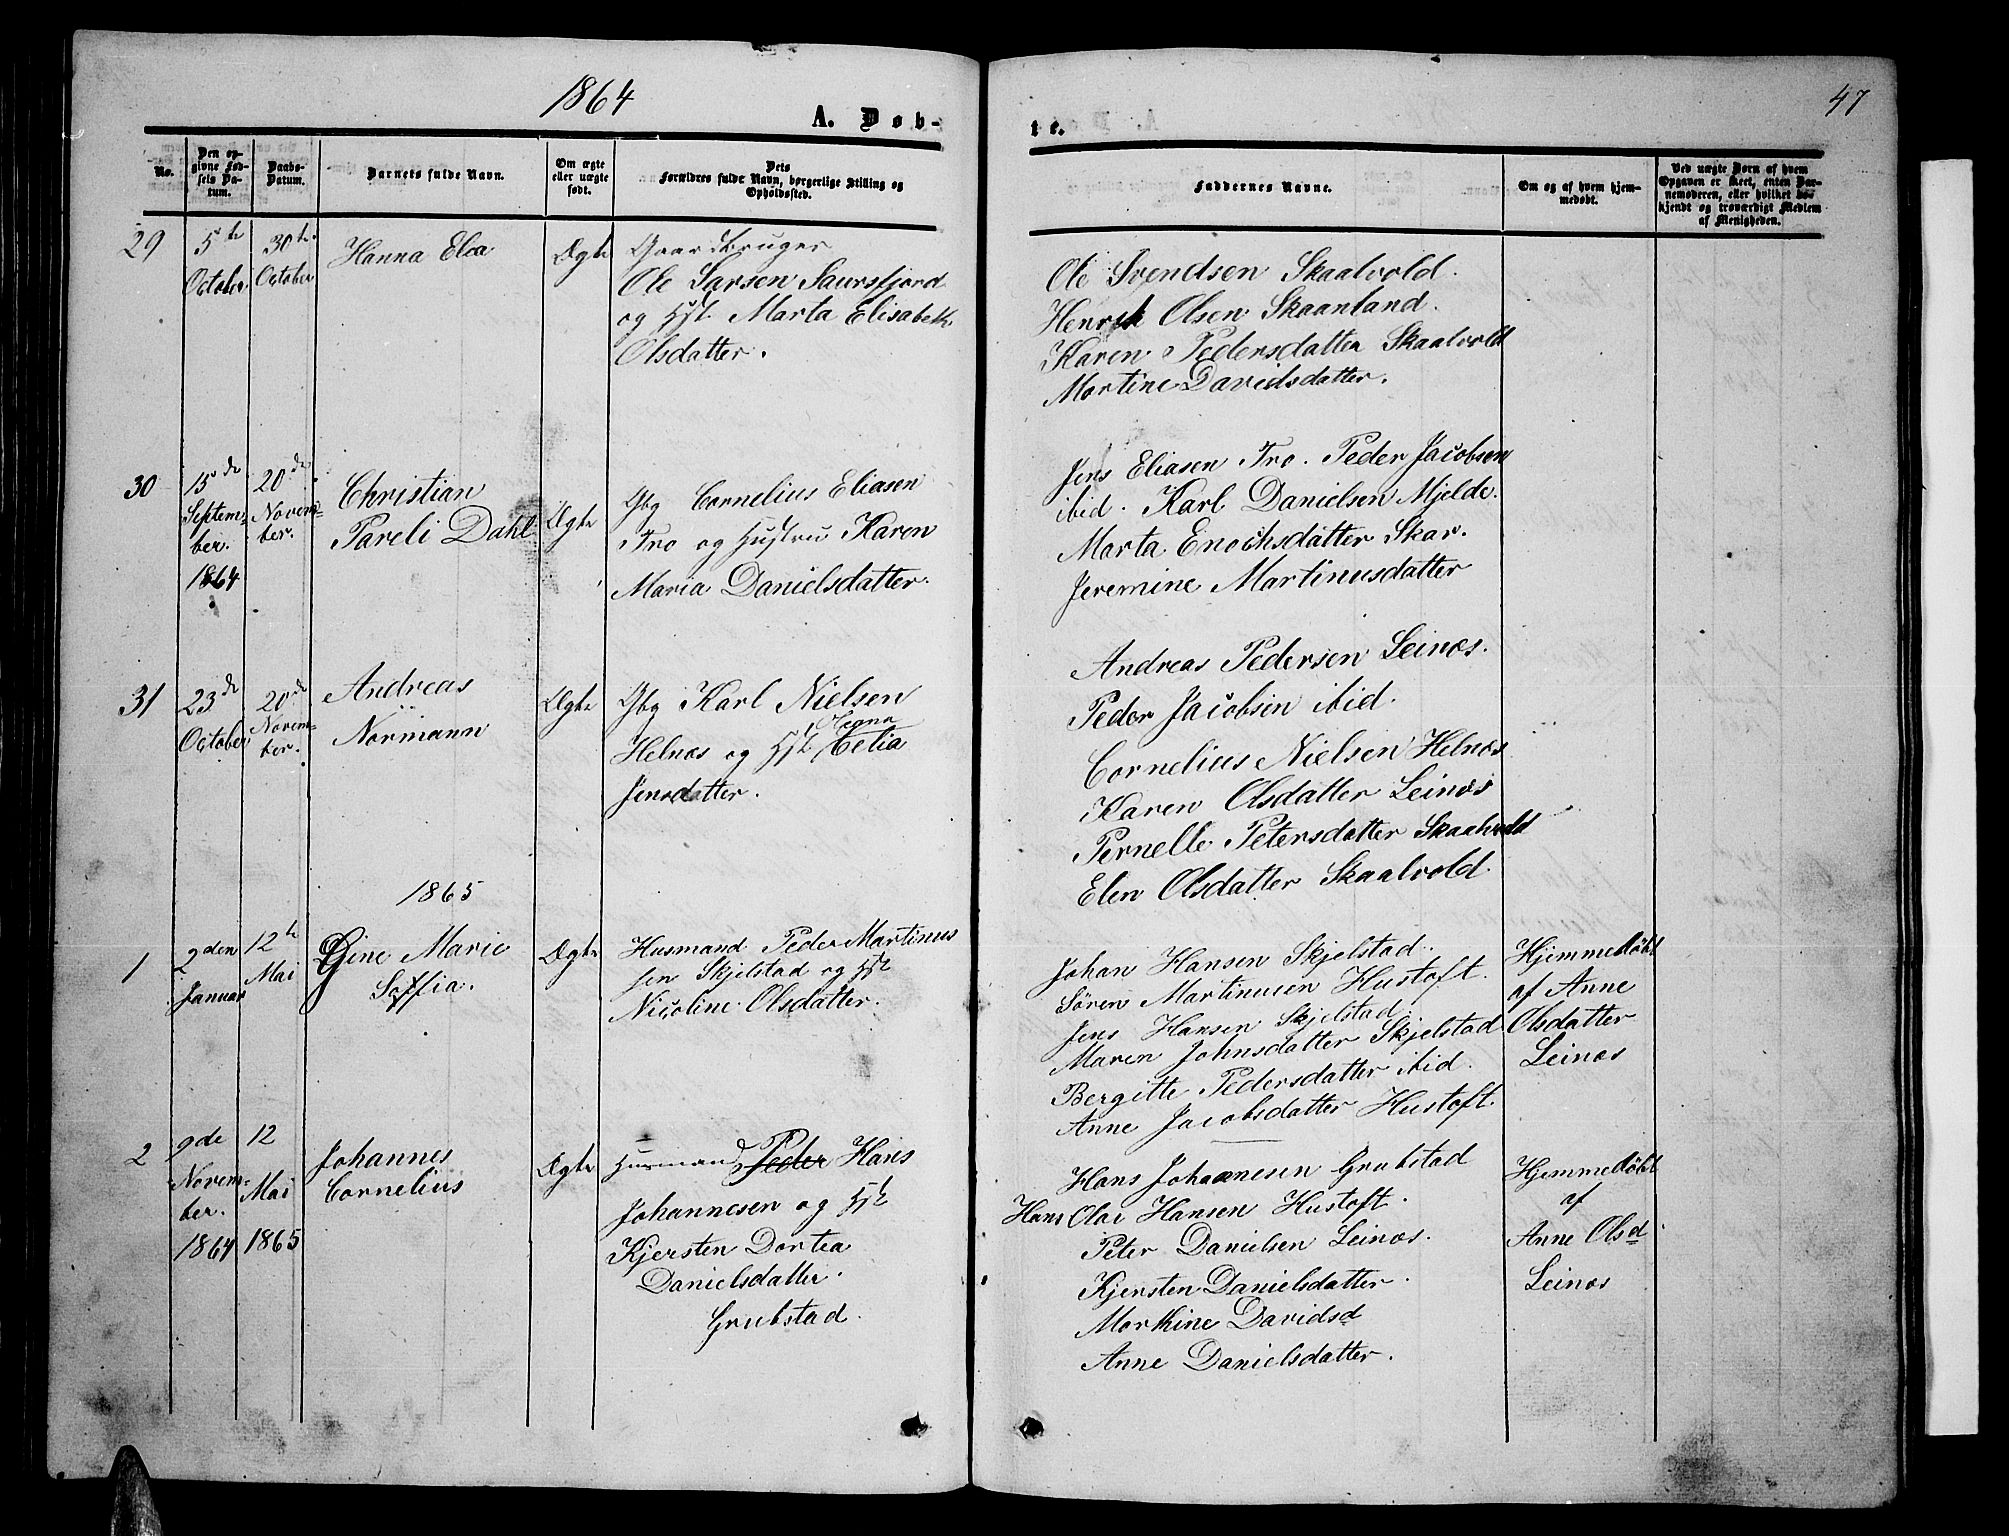 1864
A. Døb-
te.
47
No.
Den op-
givne Fød-
sels Da-
tum.
Daabs-
Datum.
Barnets fulde Navn.
Om ægte
eller uægte
født.
Dets
Forældres fulde Navn, borgerlige Stilling og
Opholdssted.
Faddernes Navne.
Om og af hvem hjem-
medøbt.
Ved uægte Børn af hvem
Opgaven er skeet, enten Bar-
nemoderen, eller hvilket be-
kjendt og troværdigt Medlem
af Menigheden.
29
5te
October
30te
October
Hanna Elea
Ægte
Gaardbruger
Ole Larsen Saursfjord
og Hst. Marta Elisabeth
Olsdatter.
Ole Svendsen Skaalvold.
Henrik Olsen Skaanland.
Karen Pedersdatter Skaalvold
Martine Davidsdatter.
30
15de
Septem-
ber.
1864
20de
Novem-
ber.
Christian
Pareli Dahl
Ægte
Gbg Cornelius Eliasen
Tro og Hustru Karen
Maria Danielsdatter.
Jens Eliasen Tro. Peder Jacobsen
ibid. Karl Danielsen Mjelde.
Marta Enochsdatter Skar.
Jeremine Martinusdatter
31
23de
October
20de
Novem-
ber.
Andreas
Normann
Ægte
Gbg Karl Nielsen
Helnæs og Hst Megna Celia
Jensdatter.
Andreas Pedersen Leinæs.
Peder Jacobsen ibid.
Cornelius Nielsen Helnæs
Karen Olsdatter Leinæs
Pernelle Petersdatter Skaalvold
Elen Olsdatter Skaalvold.
1865
1
2den
Januar
12te
Mai
Gine Marie
Soffia.
Ægte
Husmand Peder Martinus
sen Skjelstad og Hst
Nicoline Olsdatter.
Johan Hansen Skjelstad.
Sören Martinusen Hustoft.
Jens Hansen Skjelstad.
Maren Johnsdatter Skjelstad
Bergitte Pedersdatter ibid.
Anne Jacobsdatter Hustoft.
Hjemmedöbt
af Anne
Olsdatter
Leinæs
2
9de
Novem-
ber.
1864
12
Mai
1865
Johannes
Cornelius
Ægte
Husmand Peder Hans
Johannesen og Hst
Kjersten Dortea
Danielsdatter.
Grubstad.
Hans Johannesen Grubstad
Hans Olai Hansen Hustoft.
Peter Danielsen Leinæs.
Kjersten Danielsdatter.
Marthine Davidsd
Anne Danielsdatter.
Hjemmedöbt
af
Anne Olsd
Leinæs